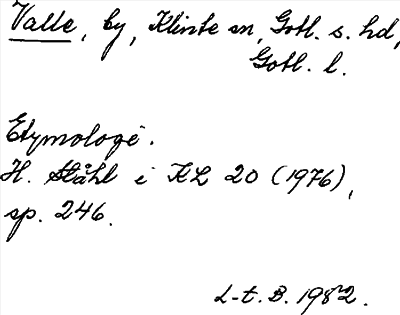 Valle, by, Klinte sn, Gotl. s. hd,
Gotl. l.
Etymologi.
H. Ståhl i KL 20 (1976),
sp. 246.
L-t. B. 1982.